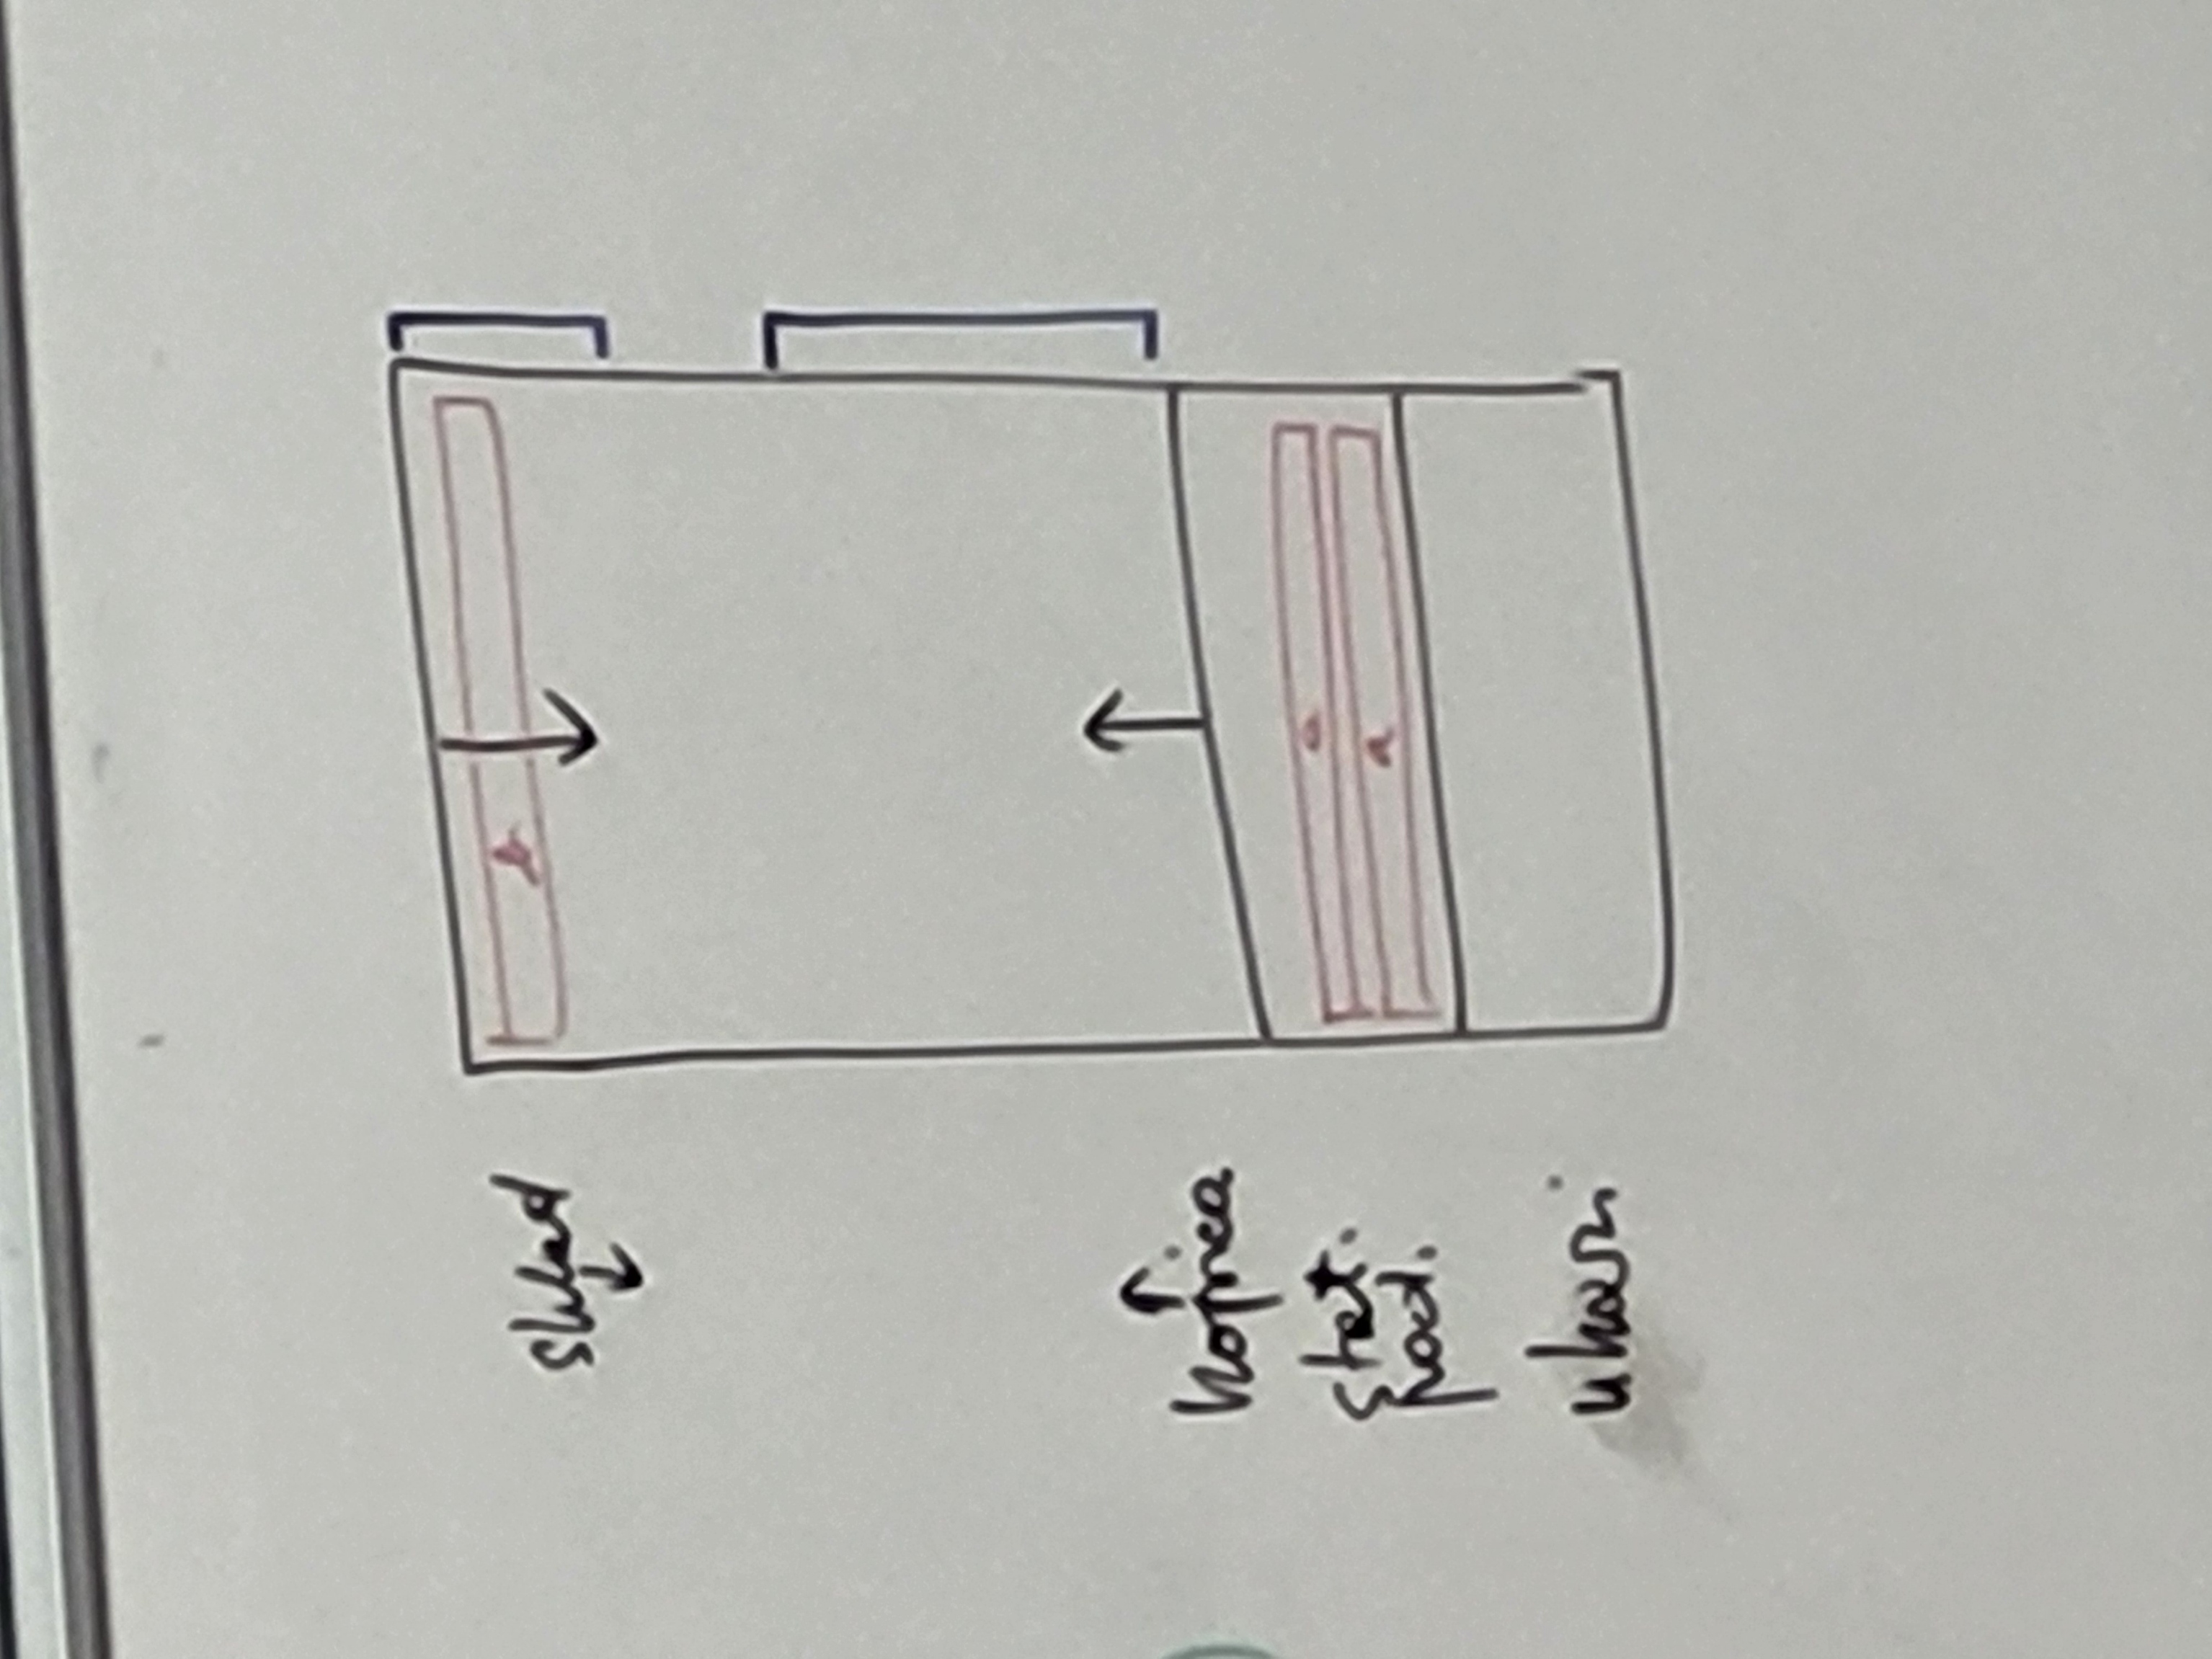 sklad
b
kopica
stat.
a
pod.
a
ukazi